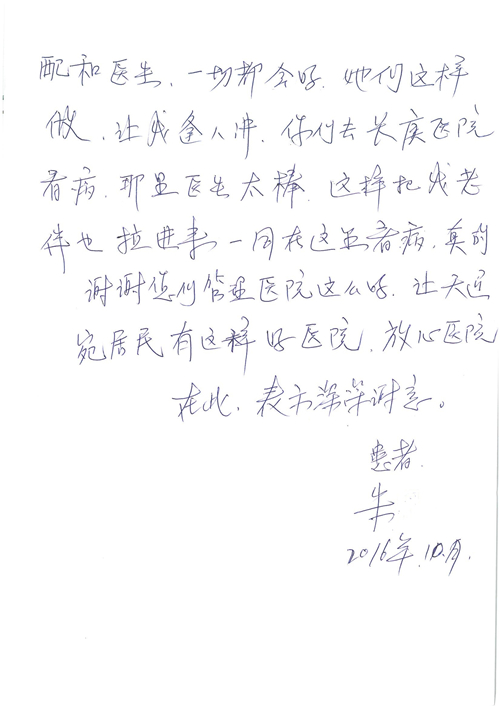 配和医生、一切都会好. 她们这样
做、让我逢人讲. 你们去长庚医院
看病. 那里医生太棒. 这样把我老
伴也拉进来一同在这里看病. 真的
谢谢您们管理医院这么好. 让天通
苑居民有这样好医院. 放心医院
在此. 表示深深谢意。
患者.
朱
2016年.10.月.